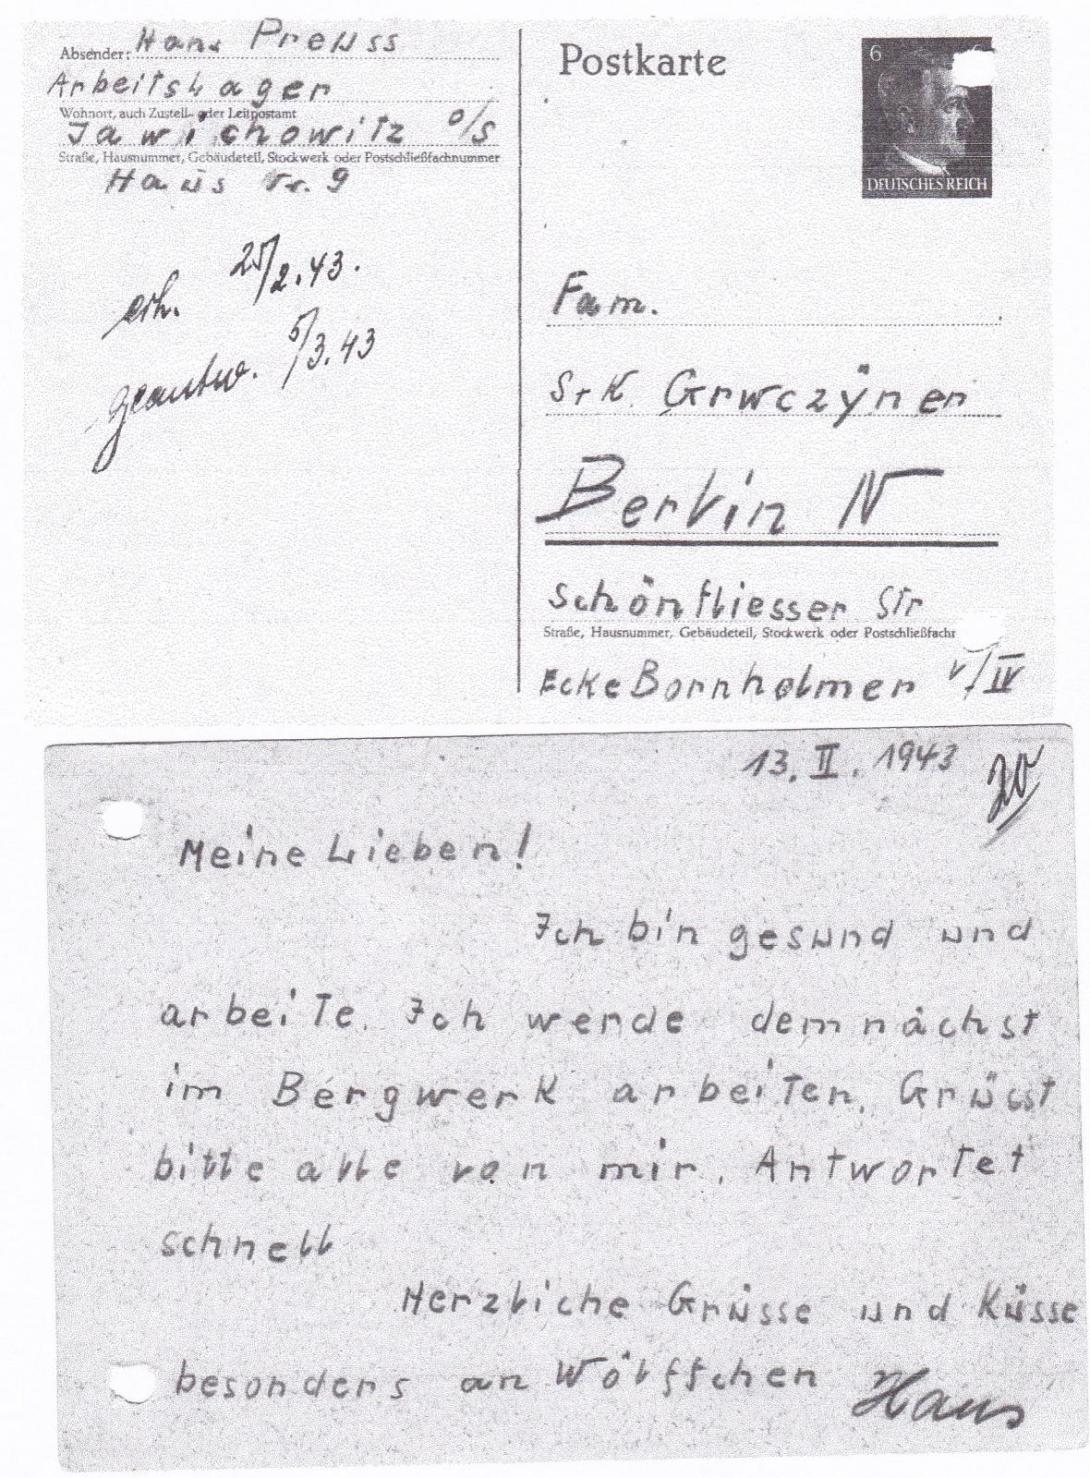 Absender: Hans Preuss
Arbeitslager
Wohnort, auch Zustell- oder Leitpostamt
Jawichowitz O/S
Straße, Hausnummer, Gebäudeteil, Stockwerk oder Postschließfachnummer
Haus Nr. 9
erh. 25/2.43.
geantw. 5/3.43
Postkarte
6
DEUTSCHES REICH
Fam.
Grwczÿner
Berlin N
Schönfliesser Str
Straße, Hausnummer, Gebäudeteil, Stockwerk oder Postschließfachr
Ecke Bornholmer v/IV
13. II. 1943
20
Meine Lieben!
Ich bin gesund und
arbeite. Ich werde demnächst
im Bergwerk arbeiten. Grüsst
bitte alle von mir. Antwortet
schnell
Herzliche Grüsse und Küsse
besonders an Wölffchen Hans